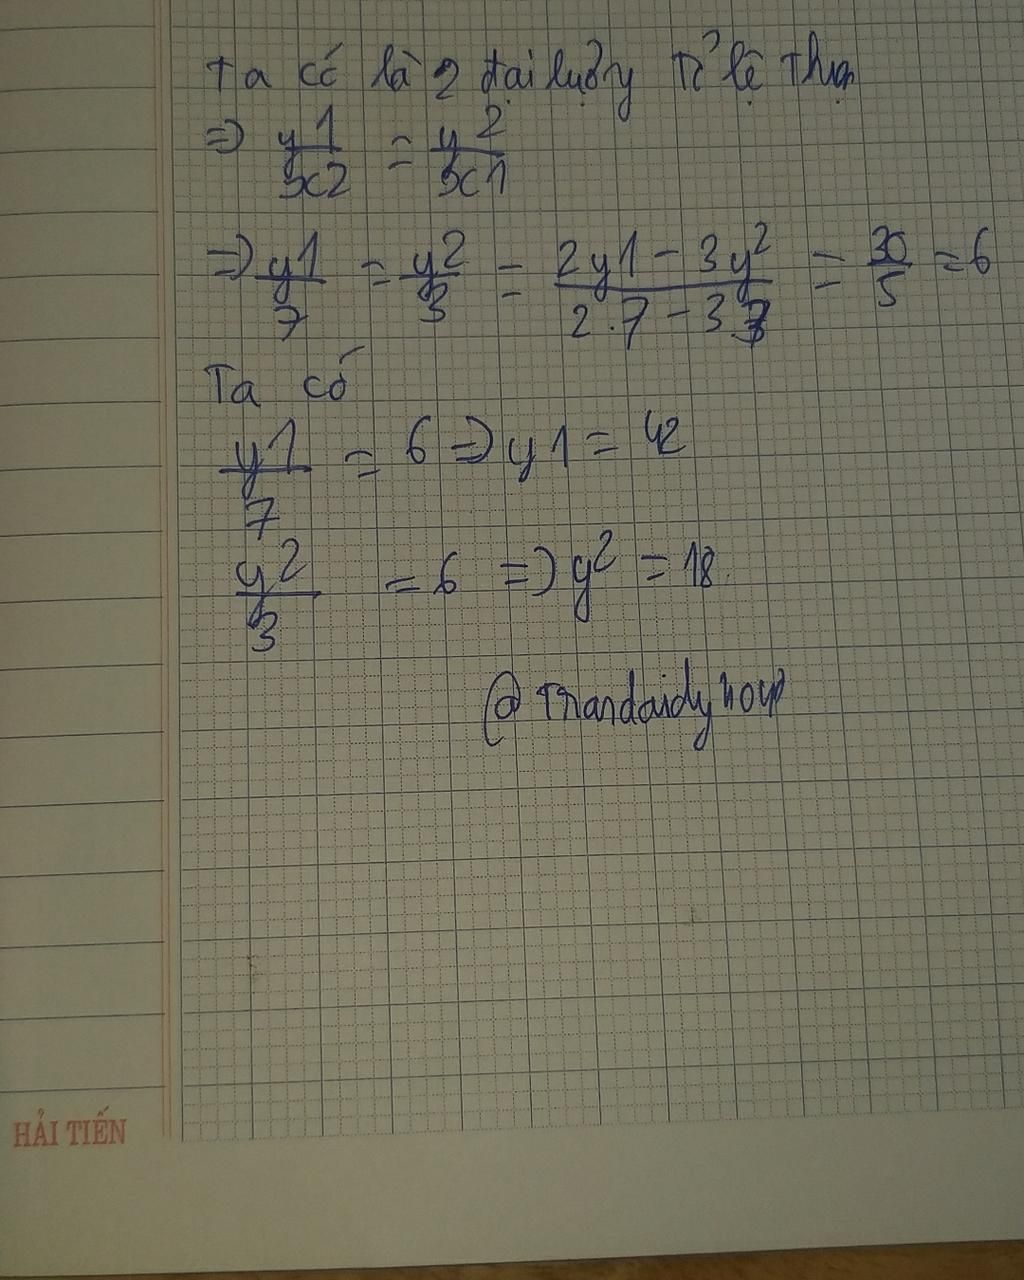 Ta có là 2 đại lượng Tỉ lệ Thuận
=> y1/x2 = y2/x1
=> y1/7 = y2/3 = 2y1 - 3y2/2.7 - 3.3 = 30/5 = 6
Ta có
y1/7 = 6 => y1 = 42
y2/3 = 6 => y2 = 18
HẢI TIẾN